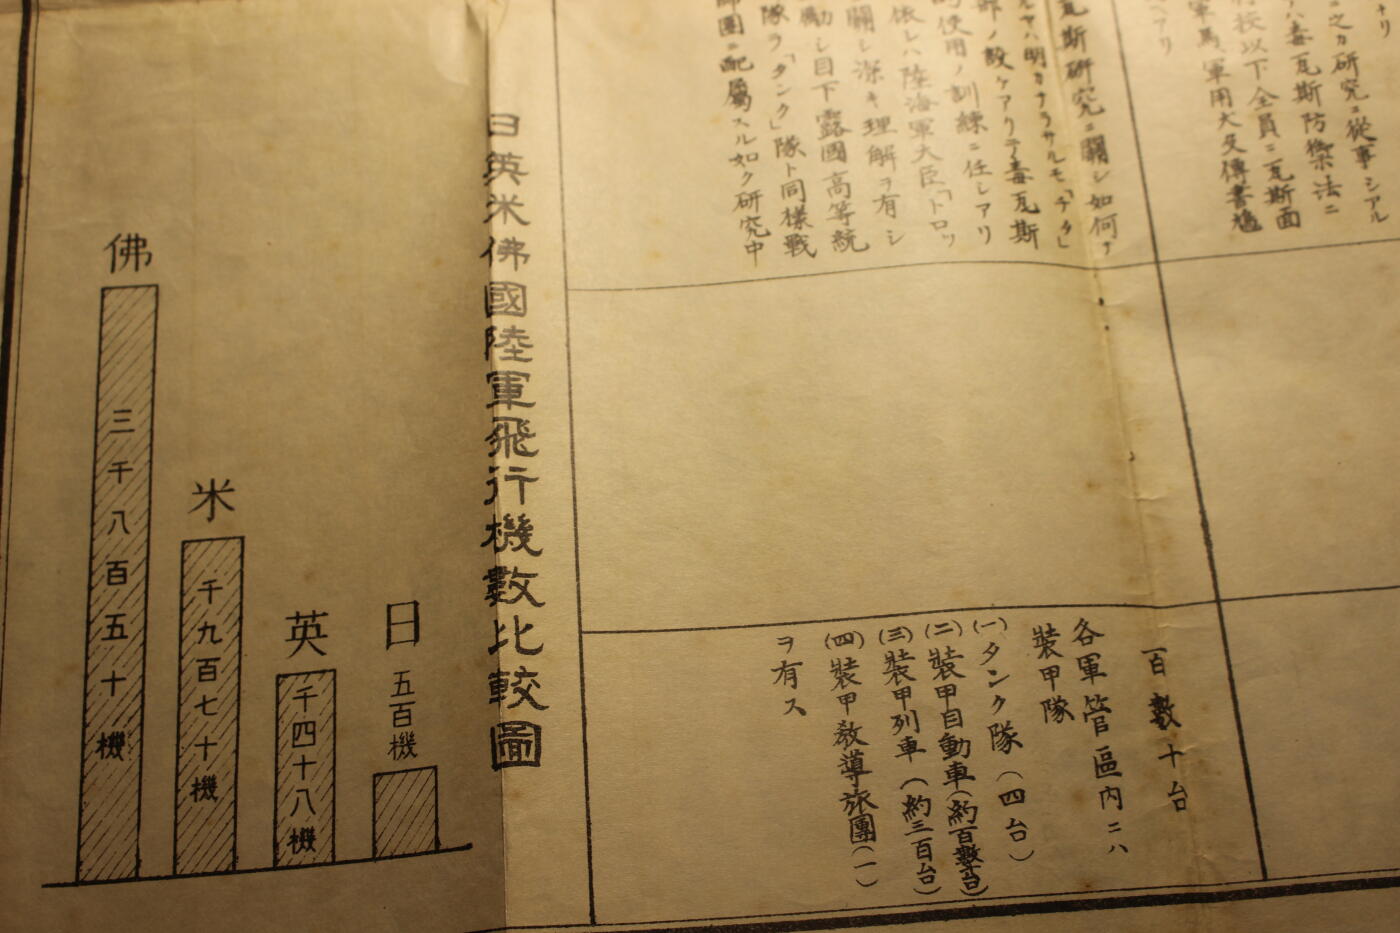 ナリ
之カ研究ニ從事シアル
ハ毒瓦斯防禦法ニ
將校以下全員ニ瓦斯面
軍馬、軍用犬及傳書鳩
ヘアリ
瓦斯研究ニ關シ如何ナ
ルヤハ明カナラサルモ「チタ」
部ノ設ケアリテ毒瓦斯
的使用ノ訓練ニ任シアリ
依レハ陸海軍大臣「トロツ
關シ深キ理解ヲ有シ
働シ目下露國高等統
隊ヲ「タンク」隊ト同樣戰
師團ニ配屬スル如ク研究中
百數十台
各軍管區內ニハ
裝甲隊
(一)タンク隊(四台)
(二)裝甲自動車(約百數台)
(三)裝甲列車(約三百台)
(四)裝甲敎導旅團(一)
ヲ有ス
日英米佛國陸軍飛行機數比較圖
日
五百機
英
千四十八機
米
千九百七十機
佛
三千八百五十機